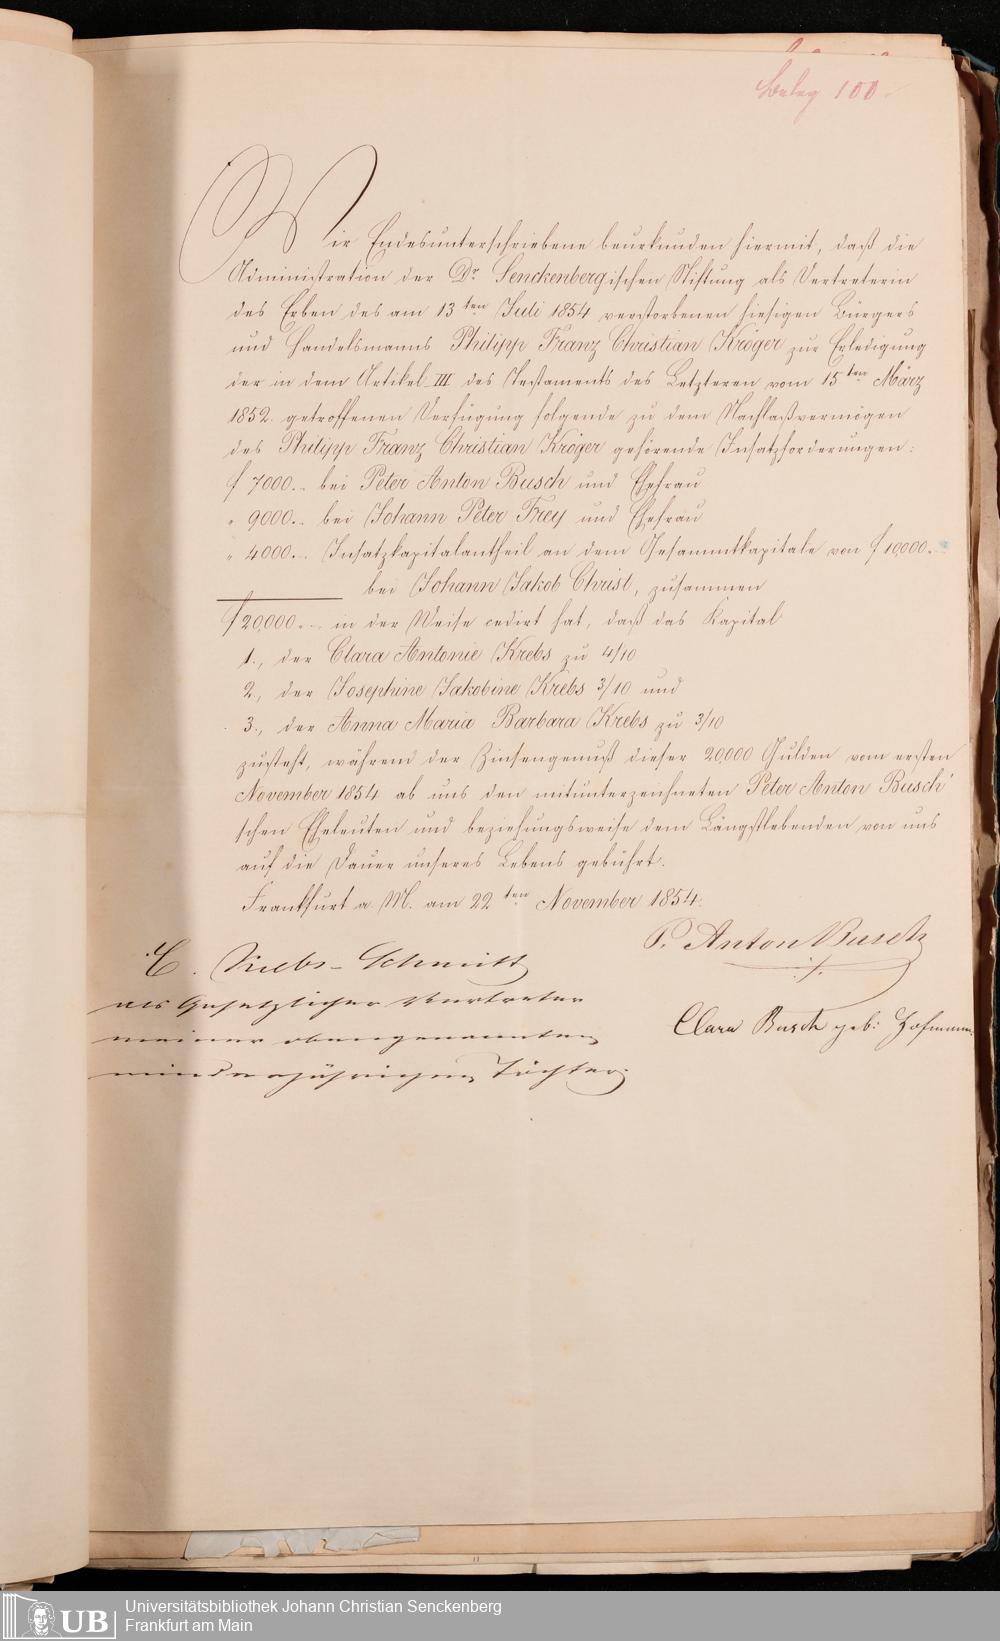 Beleg 100.
Wir Endesunterschriebene beurkunden hiermit, daß die
Administration der Dr. Senckenbergischen Stiftung als Vertreterin
des Erben des am 13ten Juli 1854 verstorbenen hiesigen Bürgers
und Handelsmanns Philipp Franz Christian Kröger zur Erledigung
der in dem Artikel III des Testaments des Letzteren vom 15ten März
1852. getroffenen Verfügung folgende zu dem Nachlaßvermögen
des Philipp Franz Christian Kröger gehörende Insatzforderungen:
f 7000.- bei Peter Anton Busch und Ehefrau
" 9000.- bei Johann Peter Frey und Ehefrau
" 4000.- Insatzkapitalantheil an dem Gesammtkapitale von f 10,000.-
bei Johann Jakob Christ, zusammen
f 20,000.- in der Weise cedirt hat, daß das Kapital
1., der Clara Antonie Krebs zu 4/10
2., der Josephine Jakobine Krebs 3/10 und
3., der Anna Maria Barbara Krebs zu 3/10
zusteht, während der Zinsengenuß dieser 20,000 Gulden vom ersten
November 1854 ab uns den mitunterzeichneten Peter Anton Busch'
schen Eheleuten und beziehungsweise dem Längstlebenden von uns
auf die Dauer unseres Lebens gebührt.
Frankfurt a. M. am 22ten November 1854.
P. Anton Busch
C. Krebs-Schmitt
als Gesetzlicher Vertreter
meiner obengenannten
minderjährigen Töchter.
Clara Busch geb: Hofmann
UB
Universitätsbibliothek Johann Christian Senckenberg
Frankfurt am Main